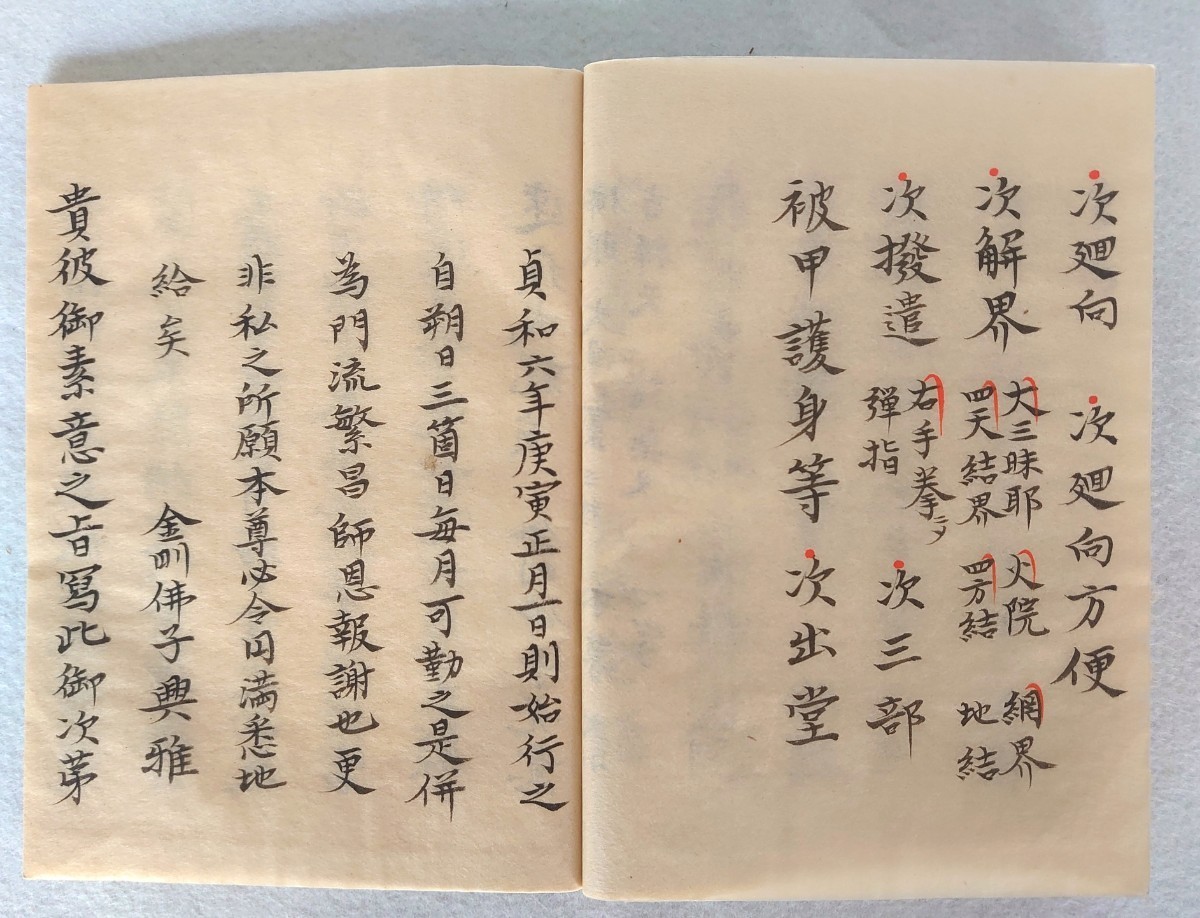 次廻向　次廻向方便
次解界　大三昧耶　火院　網界
四天結界　四方結　地結
次撥遣　右手拳ニシテ
弾指　次三部
被甲護身等　次出堂
貞和六年庚寅正月一日則始行之
自朔日三箇日毎月可勤之是併
為門流繁昌師恩報謝也更
非私之所願本尊必令円満悉地
給矣　金剛佛子興雅
貴彼御素意之旨寫此御次第